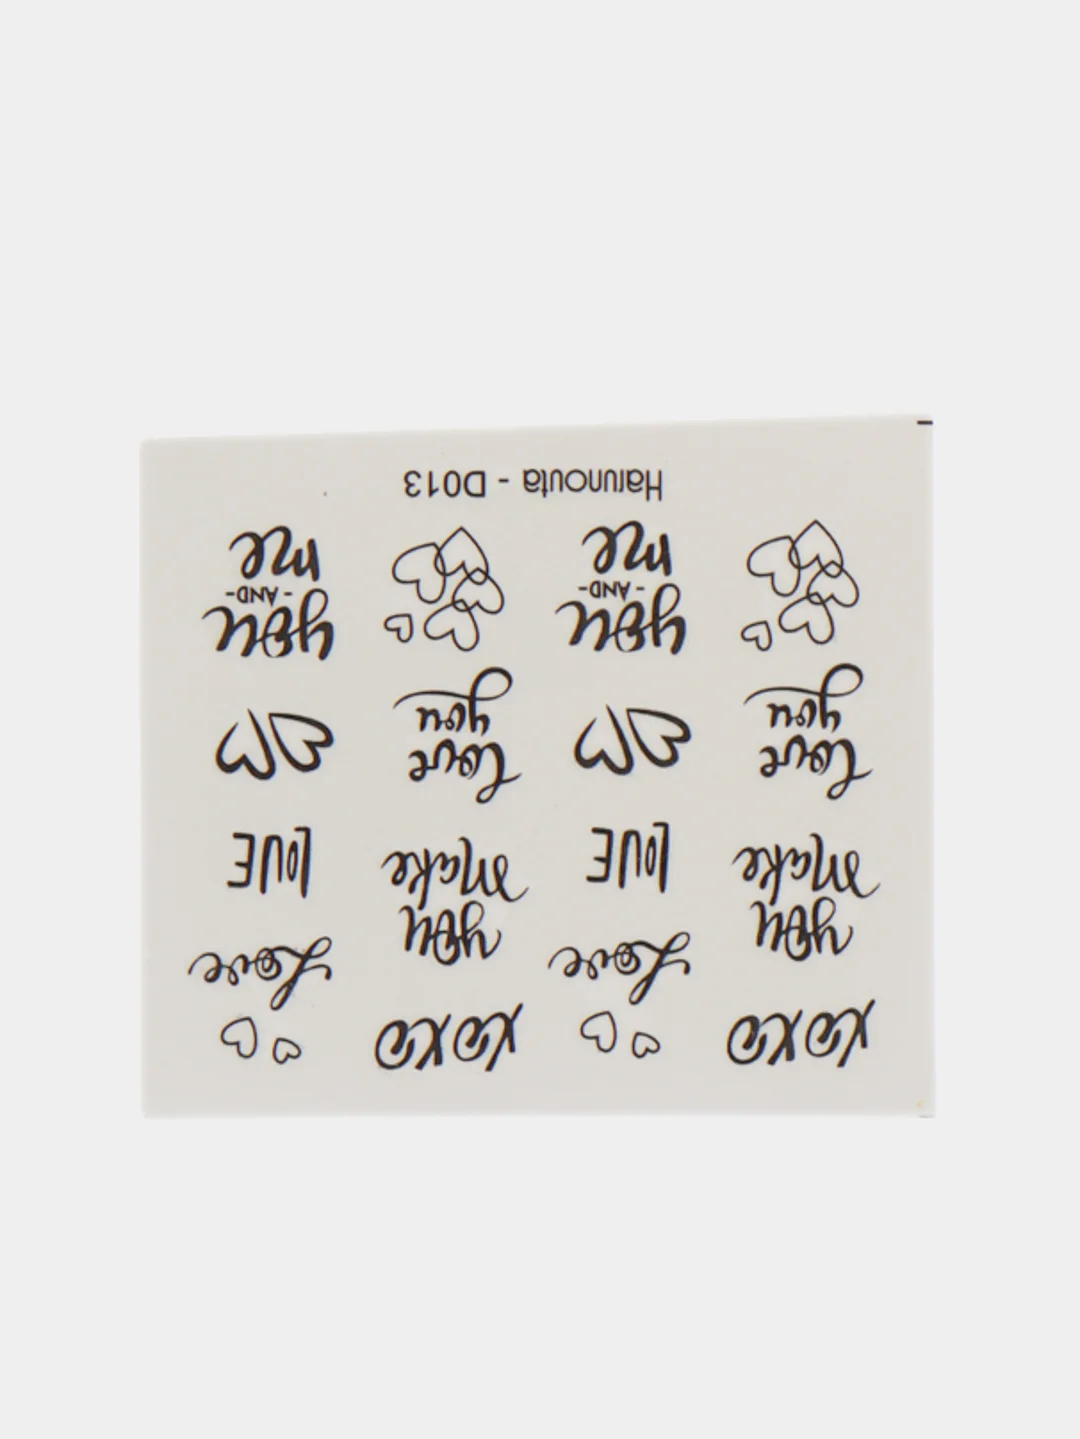 xoxo
xoxo
you
make
Love
you
make
Love
LOVE
LOVE
Love
you
Love
you
you
-AND-
me
you
-AND-
me
Harunouta - D013